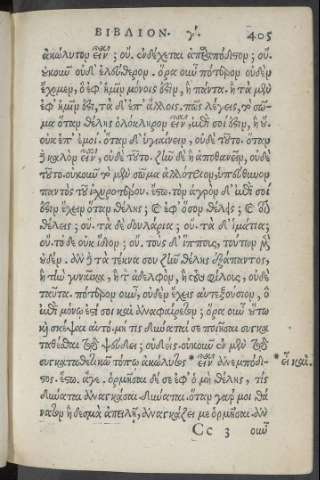 ΒΙΒΛΙΟΝ. γ'. 405
ἀκώλυτον εἶναι; οὔ. ἐνδέχεται ἀπαραπόδιστον; οὔ.
οὐκοῦν οὐδ' ἐλεύθερον. ὅρα οὖν πότερον οὐδὲν
ἔχομεν, ὃ ἐφ' ἡμῖν μόνοις ἐστὶν, ἢ πάντα. ἢ τὰ μὲν
ἐφ' ἡμῖν ἐστι, τὰ δ' ἐπ' ἄλλοις. πῶς λέγεις, τὸ σῶ-
μα ὅταν θέλῃς ὁλόκληρον εἶναι, ἐπὶ σοί ἐστιν, ἢ οὔ.
οὐκ ἐπ' ἐμοί. ὅταν δ' ὑγιαίνειν, οὐδὲ τοῦτο. ὅταν
δὲ καλὸν εἶναι, οὐδὲ τοῦτο. ζῆν δὲ ἢ ἀποθανεῖν, οὐδὲ
τοῦτο. οὐκοῦν τὸ μὲν σῶμα ἀλλότριον, ὑπεύθυνον
παντὸς τοῦ ἰσχυροτέρου. ἔστω. τὸν ἀγρὸν δ' ἐπὶ σοί
ἐστιν ἔχειν ὅταν θέλῃς; καὶ ἐφ' ὅσον θέλῃς; καὶ οἷον
θέλεις; οὔ. τὰ δὲ δουλάρια; οὔ. τὰ δ' ἱμάτια;
οὔ. τὸ δὲ οἰκίδιον; οὔ. τοὺς δ' ἵππους, τούτων μὲν
οὐδέν. ἂν δὲ τὰ τέκνα σου ζῆν θέλῃς ἐξάπαντος,
ἢ τὴν γυναῖκα, ἢ τ' ἀδελφὸν, ἢ τοὺς φίλους, οὐδὲ
ταῦτα. πότερον οὖν, οὐδὲν ἔχεις αὐτεξούσιον, ὃ
ἐπὶ μόνῳ ἐστί σοι καὶ ἀναφαίρετον; ὅρα οὖν οὕτω
καὶ σκέψαι αὐτό. μή τις δύναταί σε ποιῆσαι συγκα
ταθέσθαι τῷ ψεύδει; οὐδείς. οὐκοῦν ἐν μὲν τῷ
συγκαταθετικῷ τόπῳ ἀκώλυτος * εἶναι ἀνεμπόδι- * εἶ καὶ
στος. ἔστω. ἄγε. ὁρμῆσαι δέ σε ἐφ' ὃ μὴ θέλῃς, τίς
δύναται ἀναγκάσαι. δύναται. ὅταν γάρ μοι θά
νατον ἢ δεσμὰ ἀπειλῇ, ἀναγκάζει με ὁρμῆσαι. ἂν
Cc 3 οὖν